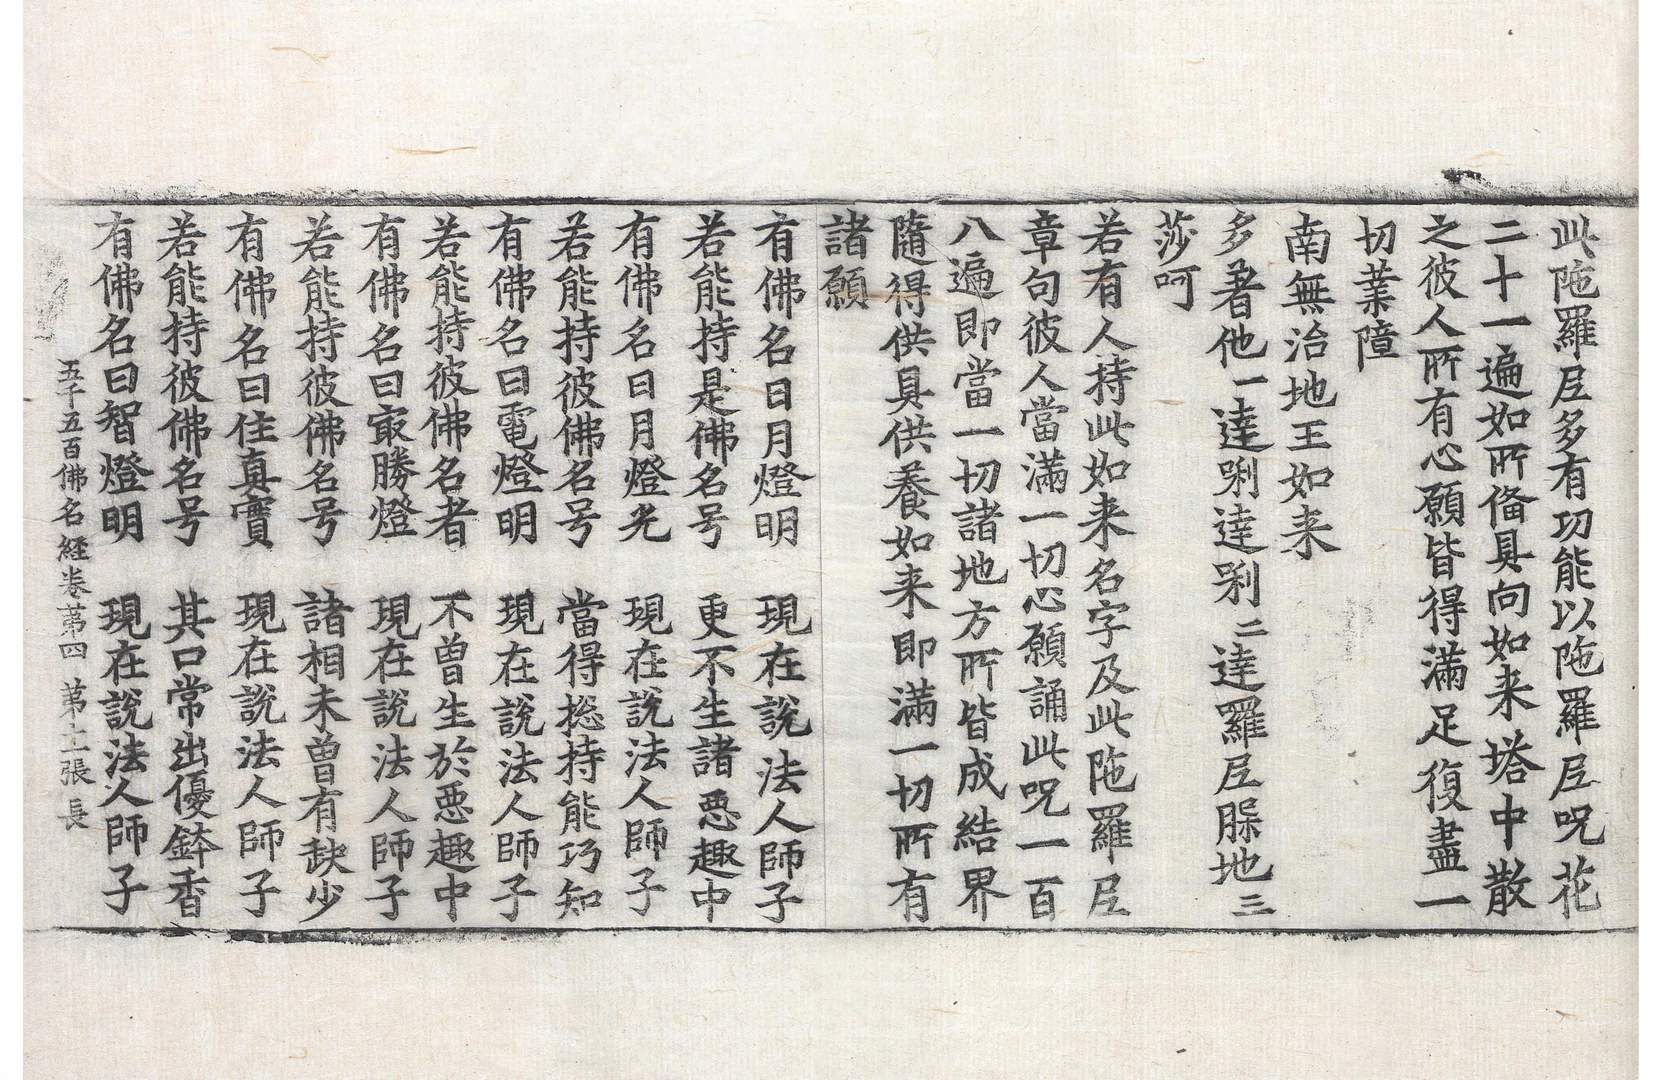 此陁羅尼多有功能以陁羅尼呪花
二十一遍如所俻具向如来塔中散
之彼人所有心願皆得滿足復盡一
切業障
南無治地王如来
多耆他一達唎達唎二達羅尼䐗地三
莎呵
若有人持此如来名字及此陁羅尼
章句彼人當滿一切心願誦此呪一百
八遍即當一切諸地方所皆成結界
隨得供具供養如来即滿一切所有
諸願
有佛名日月燈明　現在說法人師子
若能持是佛名号　更不生諸悪趣中
有佛名曰月燈光　現在說法人師子
若能持彼佛名号　當得捴持能巧知
有佛名曰電燈明　現在說法人師子
若能持彼佛名者　不曾生於悪趣中
有佛名曰㝡勝燈　現在說法人師子
若能持彼佛名号　諸相未曾有缺少
有佛名曰住真實　現在說法人師子
若能持彼佛名号　其口常出優鉢香
有佛名曰智燈明　現在說法人師子
五千五百佛名経卷苐四　苐十二張　長